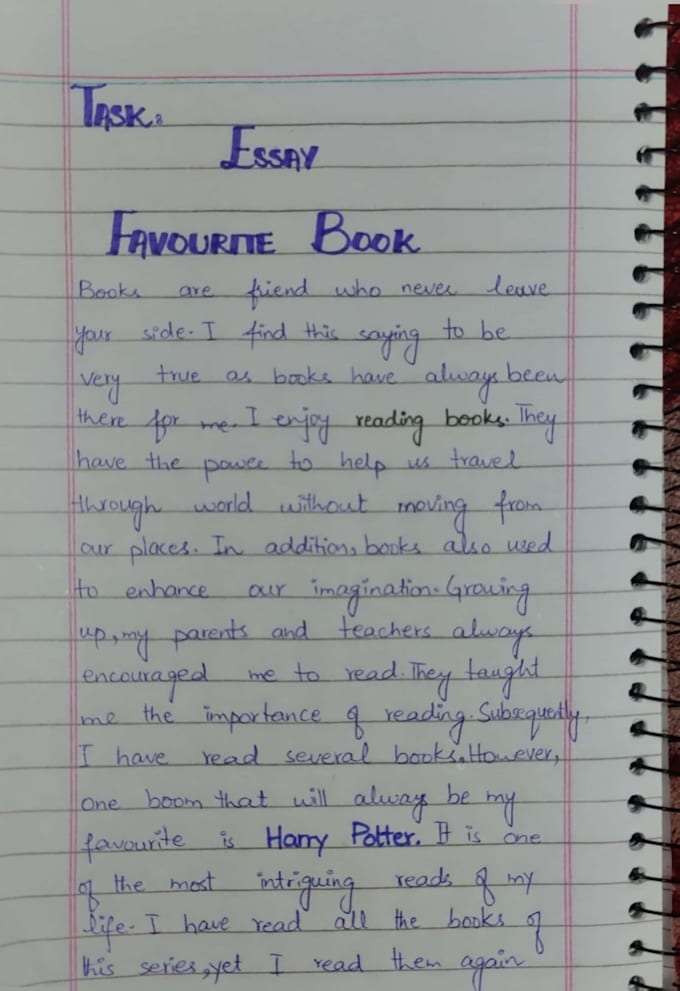 TASK:
ESSAY
FAVOURITE BOOK
Books are friend who never leave
your side. I find this saying to be
very true as books have always been
there for me. I enjoy reading books. They
have the power to help us travel
through world without moving from
our places. In addition, books also used
to enhance our imagination. Growing
up, my parents and teachers always
encouraged me to read. They taught
me the importance of reading. Subsequently,
I have read several books. However,
one boom that will always be my
favourite is Harry Potter. It is one
of the most intriguing reads of my
life. I have read all the books of
this series, yet I read them again